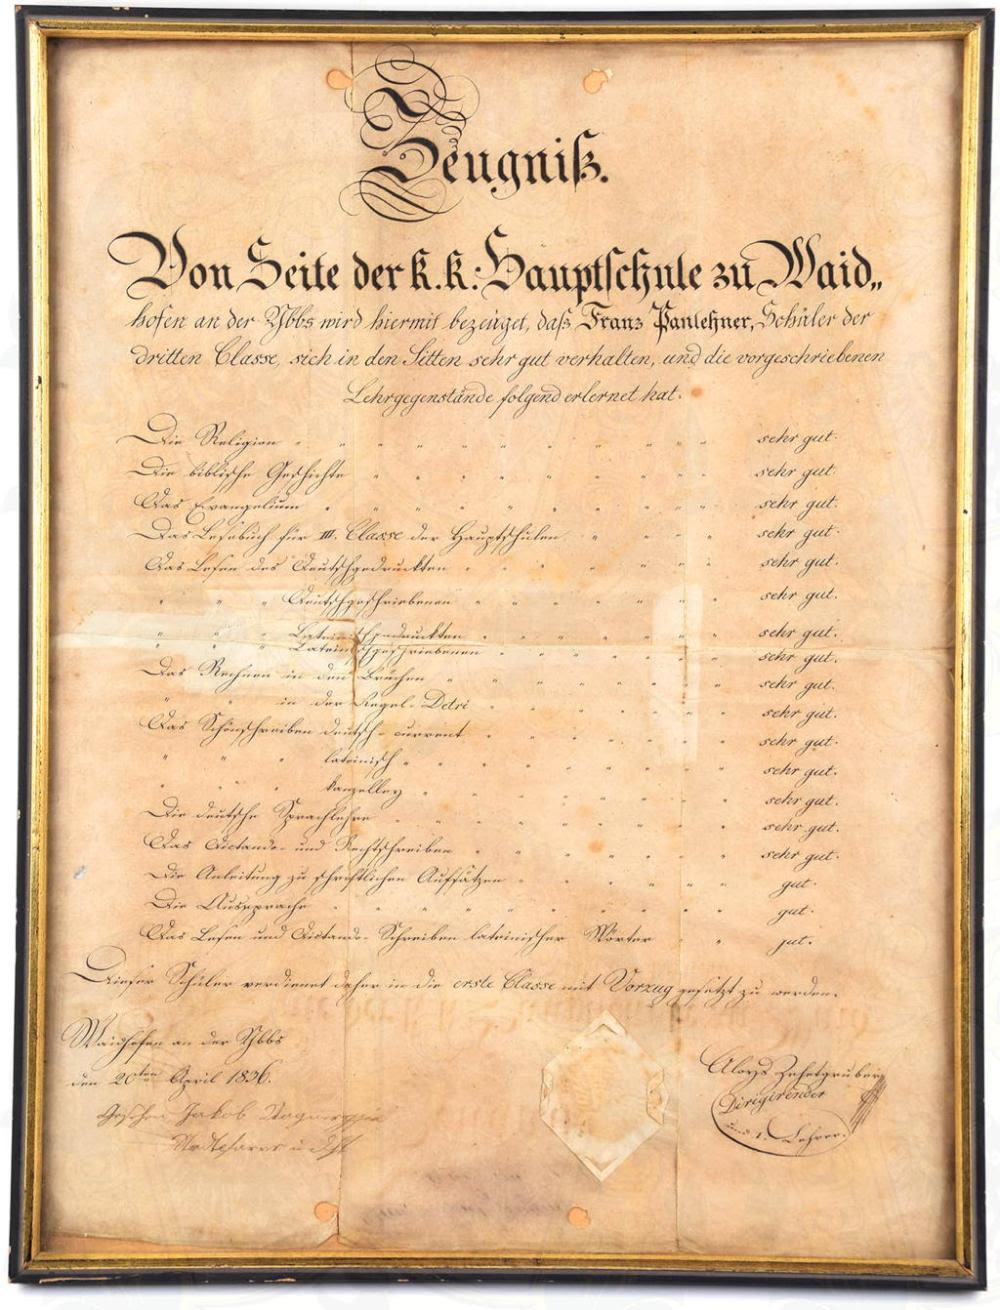 Zeugniß.
Von Seite der k. k.: Hauptschule zu Waid„
hofen an der Ybbs wird hiermit bezeuget, daß Franz Panlehner, Schüler der
dritten Classe, sich in den Sitten sehr gut verhalten, und die vorgeschriebenen
Lehrgegenstände folgend erlernet hat.
Die Religion " " " " " " " " " " sehr gut.
Die biblische Geschichte " " " " " " " " " sehr gut.
Das Evangelium " " " " " " " " " " sehr gut.
Das Lesebuch für III. Classe der Hauptschulen " " " " sehr gut.
Das Lesen des Deutschgedruckten " " " " " " sehr gut.
" " " Deutschgeschriebenen " " " " " " sehr gut.
" " " Lateinischgedruckten " " " " " " sehr gut.
" " " Lateinischgeschriebenen " " " " " " sehr gut.
Das Rechnen in den Brüchen " " " " " " " sehr gut.
" in der Regel-Detri " " " " " " sehr gut.
Das Schönschreiben deutsch-current " " " " " " sehr gut.
" " " lateinisch " " " " " " " " sehr gut.
" " " kanzelley " " " " " " " " sehr gut.
Die deutsche Sprachlehre " " " " " " " " sehr gut.
Das Dictando- und Rechtschreiben " " " " " " sehr gut.
Die Anleitung zu schriftlichen Aufsätzen " " " " " gut.
Die Aussprache " " " " " " " " " " gut.
Das Lesen und Dictando-Schreiben lateinischer Wörter " " gut.
Dieser Schüler verdienet daher in die erste Classe mit Vorzug gesetzt zu werden.
Waidhofen an der Ybbs
den 20ten April 1836.
Gesehen Jakob
Aloys Zehetgruber
Dirigirender
und 1. Lehrer.